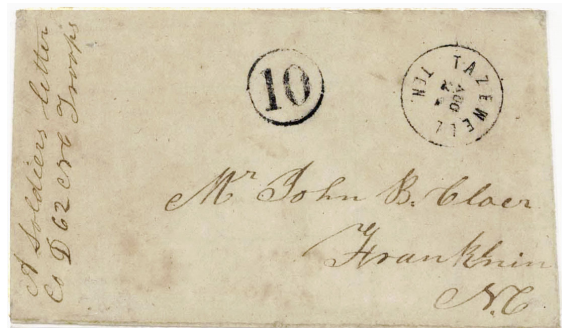 A Soldiers letter
Co D 62 NC Troops
10
TAZEWELL
TEN.
AUG
Mr John B. Cloer
Franklnin
N.C